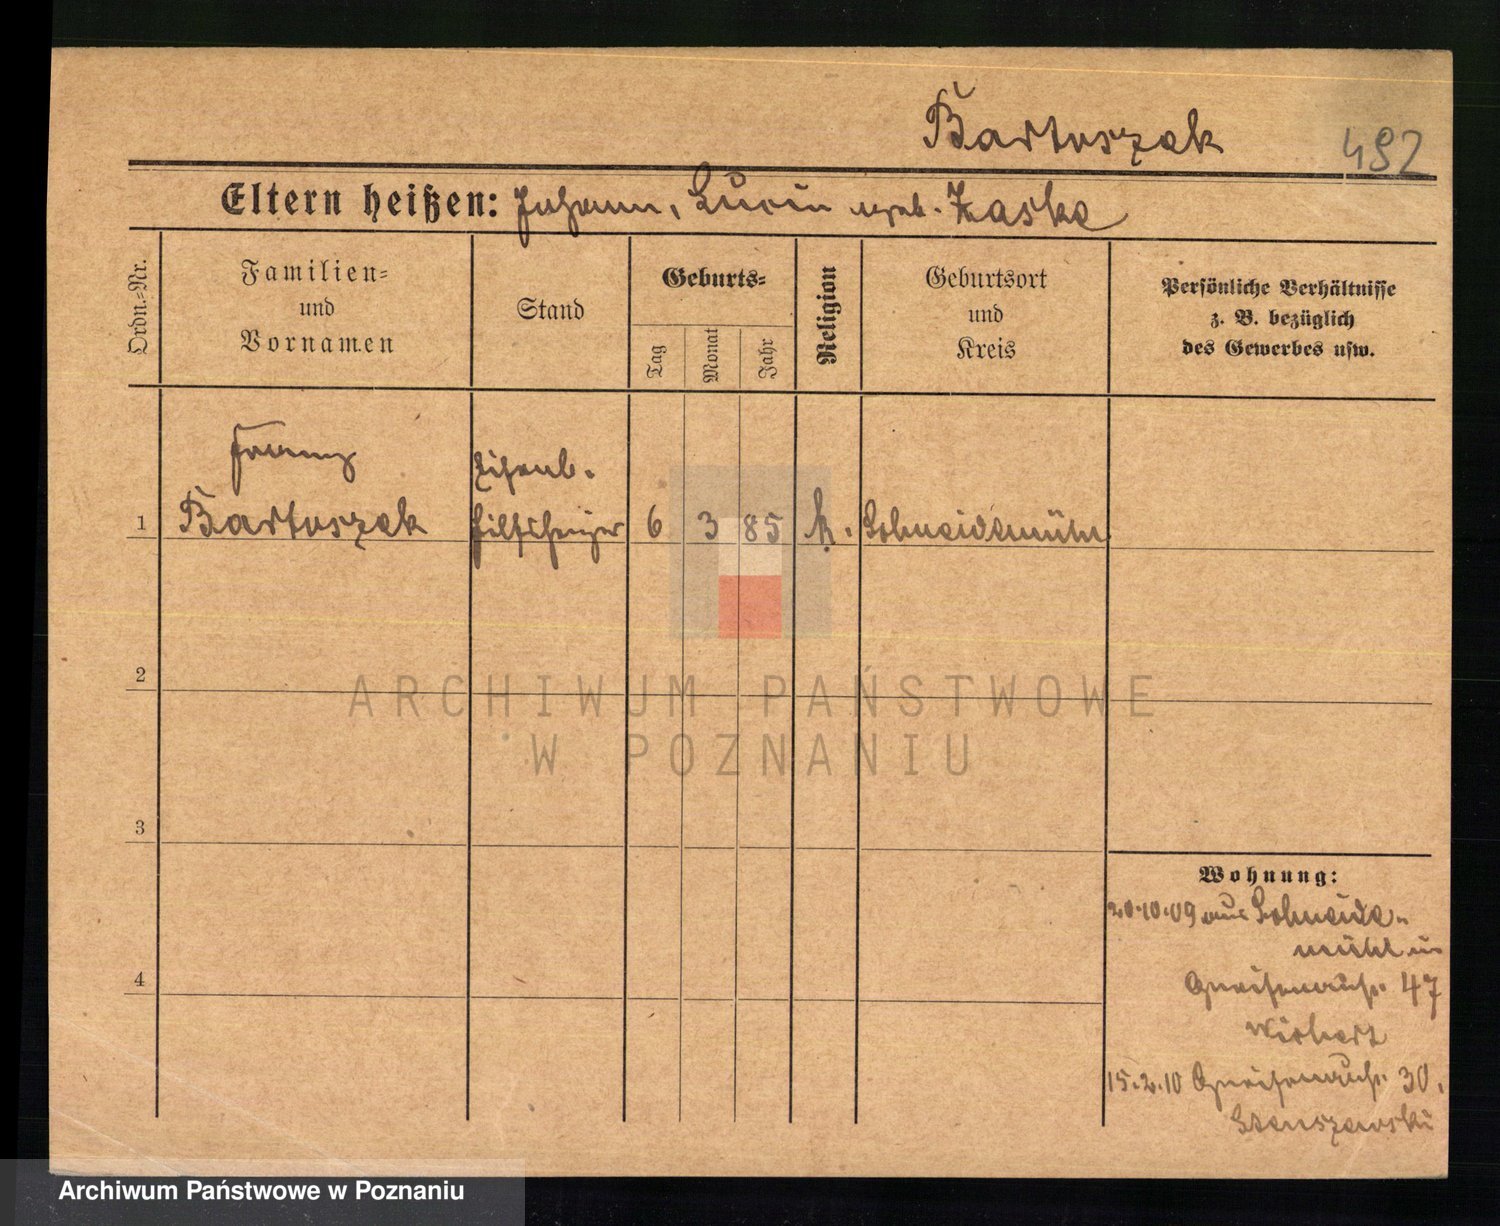 Bartoszak 492
Eltern heißen: Johann, Lucia geb. Kaska
Ordn.=Nr.
Familien=
und
Vornamen
Stand
Geburts=
Tag
Monat
Jahr
Religion
Geburtsort
und
Kreis
Persönliche Verhältnisse
z. B. bezüglich
des Gewerbes usw.
Franz
Bartoszak
Eisenb.
hilfsheizer
1 6 3 85 k. Schneidemühl
2
3
4
Wohnung:
20.10.09 aus Schneide-
mühl in
Gneisenaustr. 47
15.2.10 Gneisenaustr. 30.
ARCHIWUM PAŃSTWOWE
W POZNANIU
Archiwum Państwowe w Poznaniu